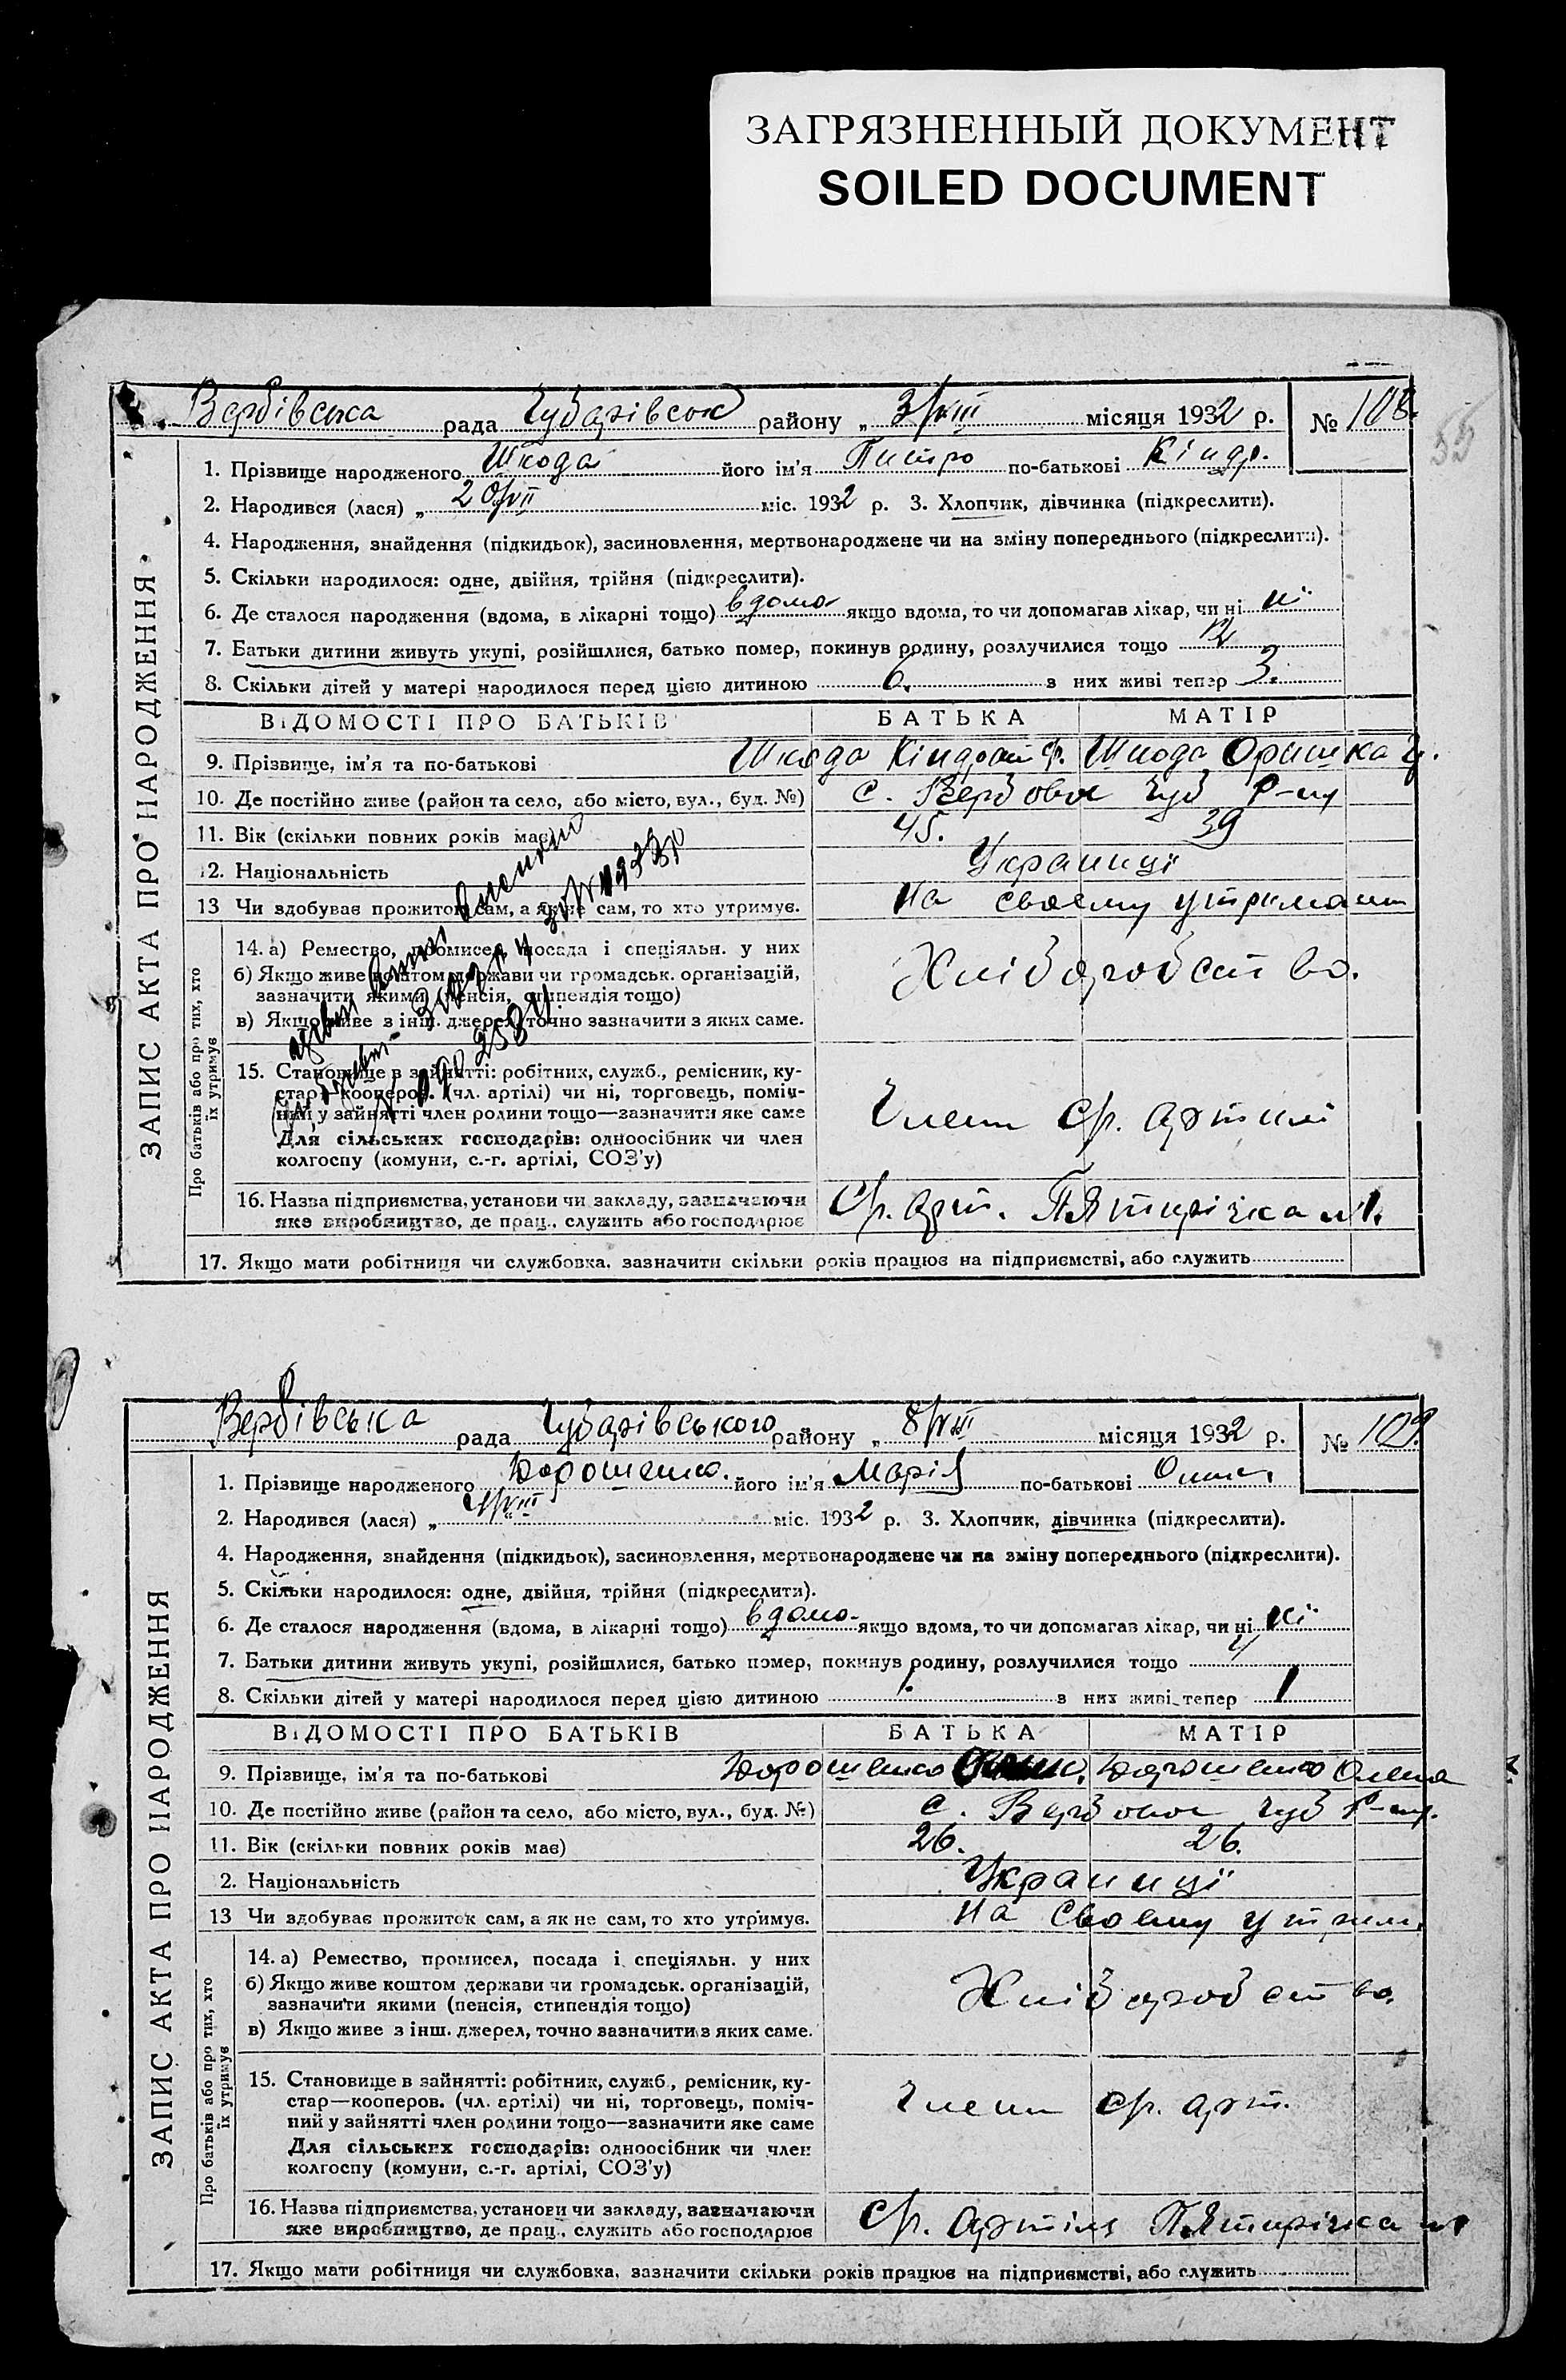 ЗАГРЯЗНЕННЫЙ ДОКУМЕНТ
SOILED DOCUMENT
55
Вербівська рада Чубарівськ району „ 3/VIII місяця 1932 р. № 108.
ЗАПИС АКТА ПРО НАРОДЖЕННЯ
1. Прізвище народженого Шкода його ім'я Питро по-батькові Кіндр.
2. Народився (лася) „ 20/VII міс. 1932 р. 3. Хлопчик, дівчинка (підкреслити).
4. Народження, знайдення (підкидьок), засиновлення, мертвонароджене чи на зміну попереднього (підкреслити).
5. Скільки народилося: одне, двійня, трійня (підкреслити).
6. Де сталося народження (вдома, в лікарні тощо) вдома якщо вдома, то чи допомагав лікар, чи ні ні
7. Батьки дитини живуть укупі, розійшлися, батько помер, покинув родину, розлучилися тощо
8. Скільки дітей у матері народилося перед цією дитиною 6. з них живі тепер 3.
ВІДОМОСТІ ПРО БАТЬКІВ БАТЬКА МАТІР
9. Прізвище, ім'я та по-батькові Шкода Кіндрат Ф. Шкода Оришка
10. Де постійно живе (район та село, або місто, вул., буд. №) с. Вербове Чуб Р-ну
11. Вік (скільки повних років має) 45. 39
12. Національність Украинці
13 Чи здобуває прожиток сам, а як не сам, то хто утримує. На своєму утриманн
Про батьків або про тих, хто їх утримує
14. а) Ремество, промисел, посада і спеціяльн. у них
б) Якщо живе коштом держави чи громадськ. організацій,
зазначити якими (пенсія, стипендія тощо)
в) Якщо живе з інш. джерел, точно зазначити з яких саме.
Хліборобство.
15. Становище в зайнятті: робітник, служб., ремісник, ку-
стар—кооперов. (чл. артілі) чи ні, торговець, поміч-
ний у зайнятті член родини тощо—зазначити яке саме
Для сільських господарів: одноосібник чи член
колгоспу (комуни, с.-г. артілі, СОЗ'у)
Член Ср. артилі
16. Назва підприємства, установи чи закладу, зазначаючи
яке виробництво, де прац., служить або господарює
Ср. арт. Пятирічка №1.
17. Якщо мати робітниця чи службовка, зазначити скільки років працює на підприємстві, або служить
Вербівська рада Чубарівського району „ 8/VIII місяця 1932 р. № 109
ЗАПИС АКТА ПРО НАРОДЖЕННЯ
1. Прізвище народженого Дорошенко. його ім'я Марія по-батькові
2. Народився (лася) „ міс. 1932 р. 3. Хлопчик, дівчинка (підкреслити).
4. Народження, знайдення (підкидьок), засиновлення, мертвонароджене чи на зміну попереднього (підкреслити).
5. Скільки народилося: одне, двійня, трійня (підкреслити).
6. Де сталося народження (вдома, в лікарні тощо) вдома якщо вдома, то чи допомагав лікар, чи ні ні
7. Батьки дитини живуть укупі, розійшлися, батько помер, покинув родину, розлучилися тощо
8. Скільки дітей у матері народилося перед цією дитиною 1. з них живі тепер 1
ВІДОМОСТІ ПРО БАТЬКІВ БАТЬКА МАТІР
9. Прізвище, ім'я та по-батькові Дорошенко Дорошенко Олена
10. Де постійно живе (район та село, або місто, вул., буд. №) с. Вербове Чуб Р-ну.
11. Вік (скільки повних років має) 26. 26.
2. Національність Украинці
13 Чи здобуває прожиток сам, а як не сам, то хто утримує. На своєму утрим.
Про батьків або про тих, хто їх утримує
14. а) Ремество, промисел, посада і спеціяльн. у них
б) Якщо живе коштом держави чи громадськ. організацій,
зазначити якими (пенсія, стипендія тощо)
в) Якщо живе з інш. джерел, точно зазначити з яких саме.
Хліборобство.
15. Становище в зайнятті: робітник, служб., ремісник, ку-
стар—кооперов. (чл. артілі) чи ні, торговець, поміч-
ний у зайнятті член родини тощо—зазначити яке саме
Для сільських господарів: одноосібник чи член
колгоспу (комуни, с.-г. артілі, СОЗ'у)
Член ср. арт.
16. Назва підприємства, установи чи закладу, зазначаючи
яке виробництво, де прац., служить або господарює
Ср. артіль Пятирічка №1
17. Якщо мати робітниця чи службовка, зазначити скільки років працює на підприємстві, або служить